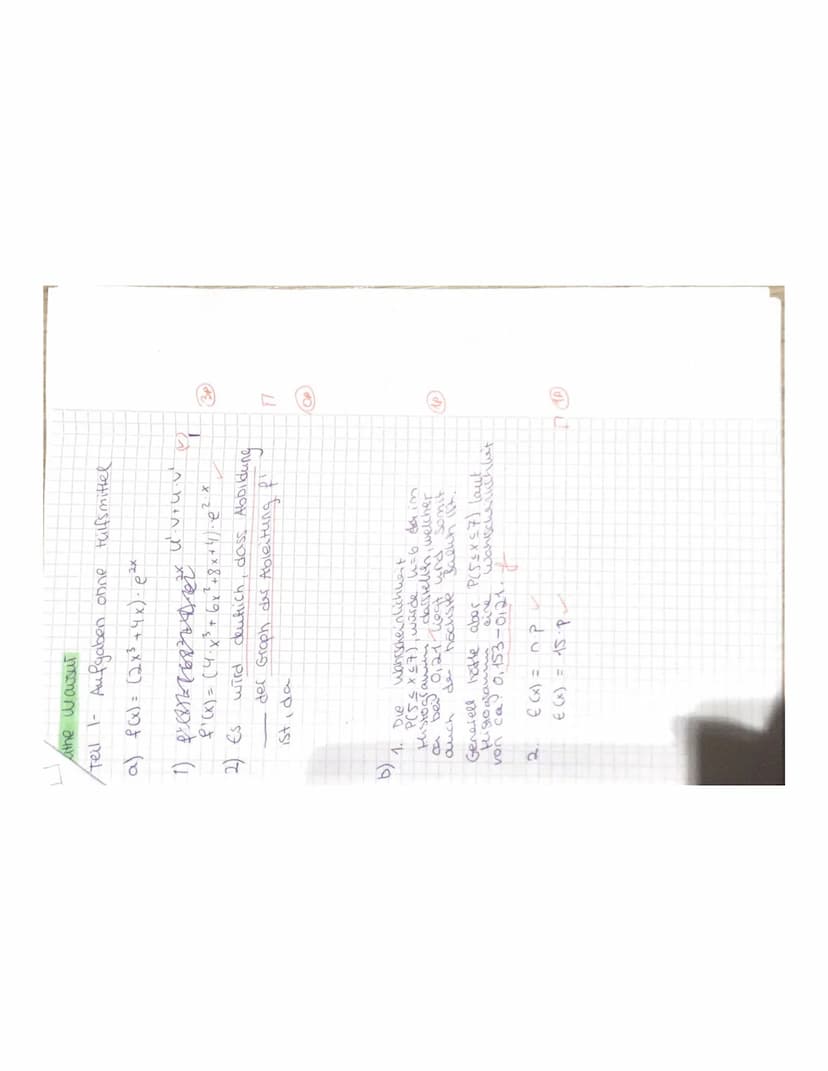 Mathe Klausur
Teil 1 - Aufgaben ohne Hilfsmittel
a) f(x) = (2x³ + 4x) · e²ˣ
1) u'·v+u·v' (✓)
f'(x) = (4·x³ + 6x² + 8x + 4) · e²·ˣ ✓ 3P
2) Es wird deutlich, dass Abbildung
— der Graph der Ableitung f' Γ
ist, da 0P
b) 1. Die Wahrscheinlichkeit
P(5 ≤ x ≤ 7), würde k=6 der im
Histogramm darstellen, welcher
ca bei 0,21 liegt und somit
auch der höchste Balken ist. 1P
Generell hätte aber P(5 ≤ x ≤ 7) laut
Histogramm eine Wahrscheinlichkeit
von ca) 0,153 - 0,21. f
2. E(x) = n p ✓
E(x) = 15 · p ✓ Γ 1P